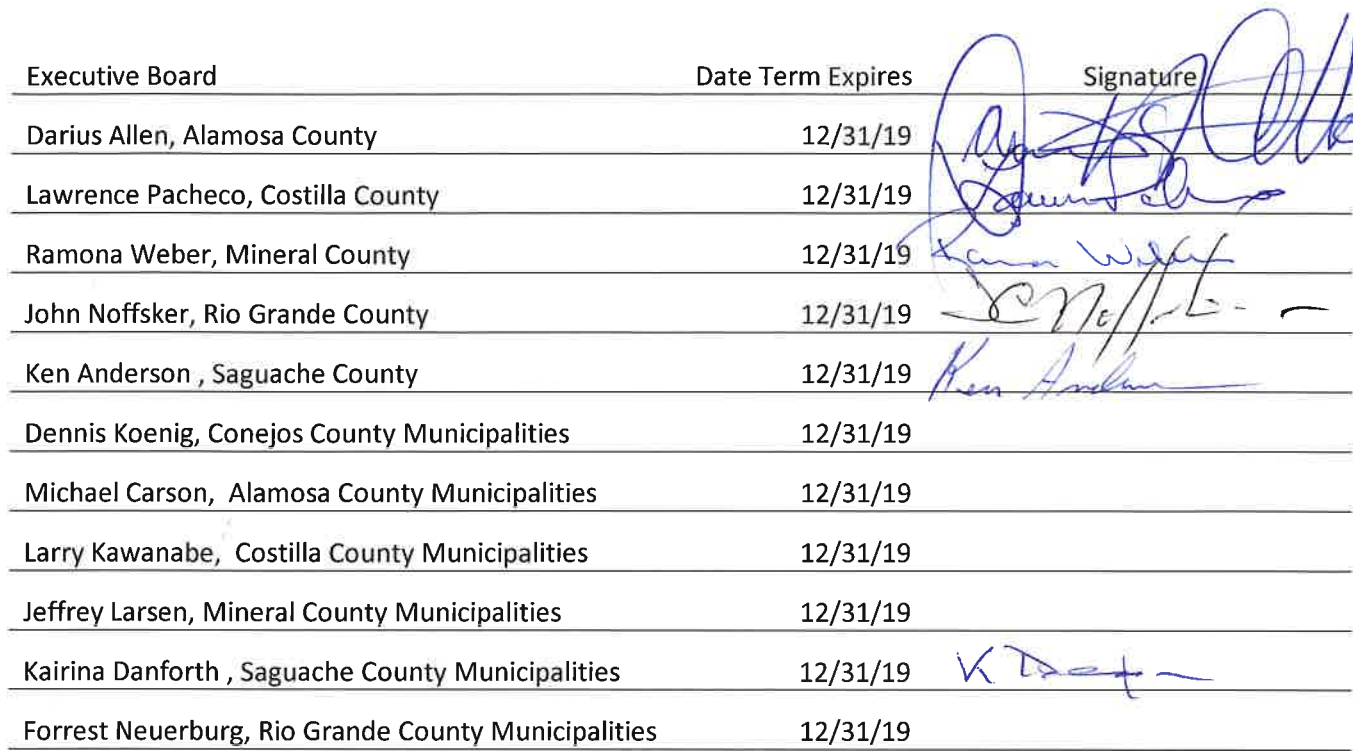 Executive Board Date Term Expires Signature
Darius Allen, Alamosa County 12/31/19
Lawrence Pacheco, Costilla County 12/31/19
Ramona Weber, Mineral County 12/31/19
John Noffsker, Rio Grande County 12/31/19
Ken Anderson , Saguache County 12/31/19 Ken
Dennis Koenig, Conejos County Municipalities 12/31/19
Michael Carson, Alamosa County Municipalities 12/31/19
Larry Kawanabe, Costilla County Municipalities 12/31/19
Jeffrey Larsen, Mineral County Municipalities 12/31/19
Kairina Danforth , Saguache County Municipalities 12/31/19 K
Forrest Neuerburg, Rio Grande County Municipalities 12/31/19